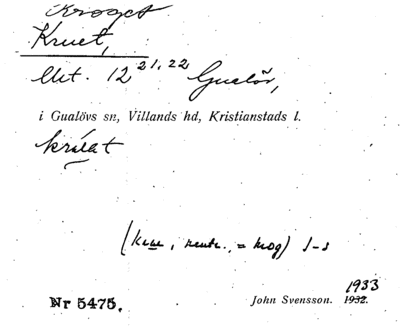 Kroget
Kruet,
Urt. 12 21,22 Gualöv,
i Gualövs sn, Villands hd, Kristianstads l.
(krue, neutr., = krog) J-s
1933
Nr 5475. John Svensson. 1932.